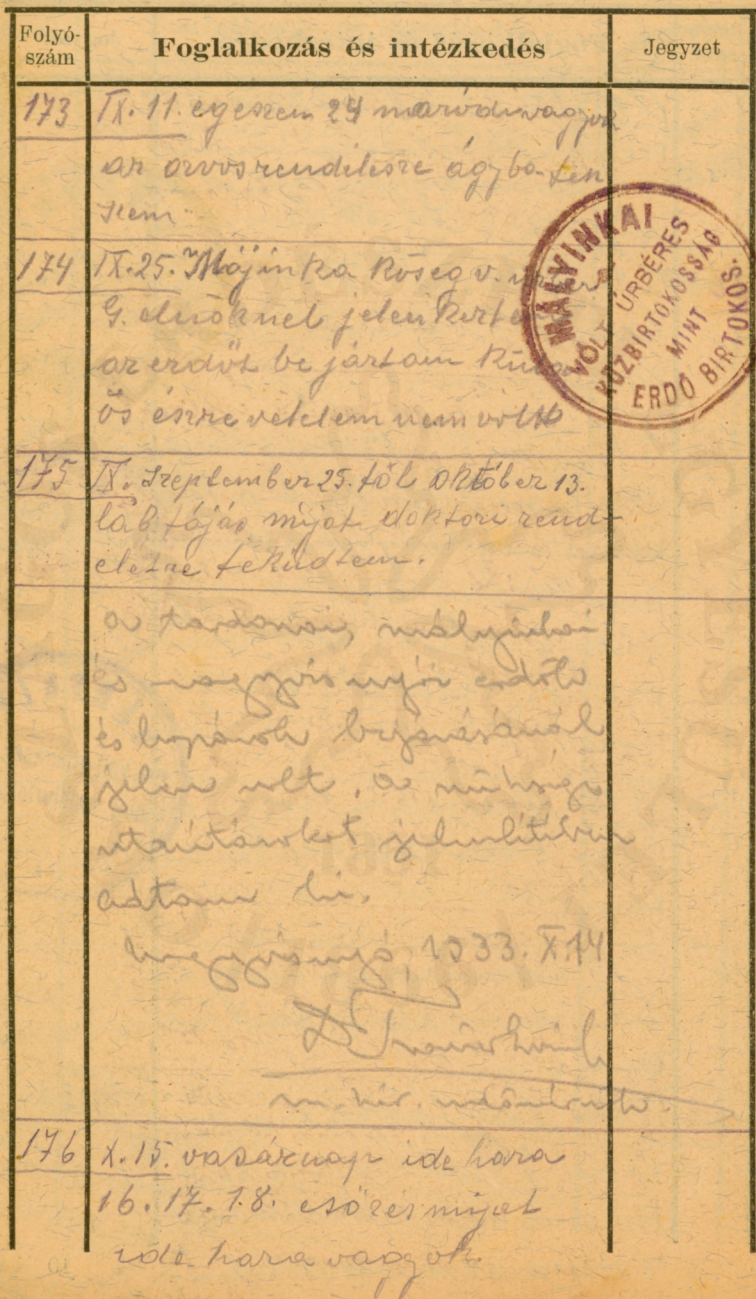 Folyó-
szám
Foglalkozás és intézkedés
Jegyzet
173 IX. 11. egeszen 24 maródivagyok
az orvosrendilesre ágyba fek
szem
174 IX. 25. Májinka Község v.
G. elnöknel jelenkezte
az erdöt be jártam Külö
ös észre vetelem nem volt
MÁLYINKAI
VOLT ÚRBÉRES
KÖZBIRTOKOSSÁG
MINT
ERDŐ BIRTOKOS.
175 IX. Szeptember 25. töl október 13.
láb fájás mijat doktori rend-
eletre feküdtem.
a tardonai, mályinkai
és nagyvisnyói erdők
és kopárok bejárásánál
jelen volt, a szükséges
utasításokat jelenlétében
adtam ki.
Nagyvisnyó, 1933. X. 14
m. kir.
176 X. 15. vasárnap ide haza
16. 17. 18. esözés mijat
ide haza vagyok